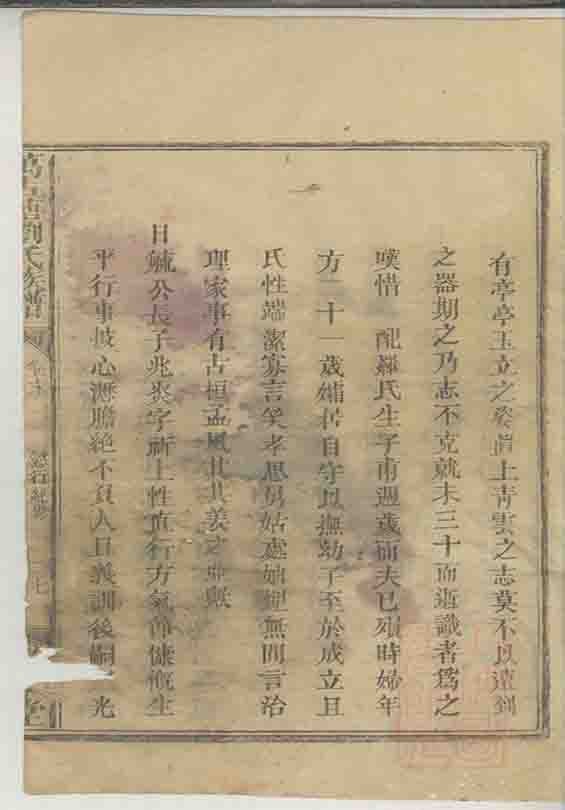 有亭亭玉立之姿直上青雲之志莫不以遠到
之器期之乃志不克就未三十而逝識者爲之
嘆惜 配羅氏生子甫週歲而夫已殞時婦年
方二十一歲孀居自守以撫幼子至於成立且
氏性端潔寡言笑孝思舅姑處妯娌無間言治
理家事有古桓孟風其共姜之亞歟
日毓公長子兆炎字 上性直行方氣節慷慨生
平行事披心瀝膽絕不負人且義訓後嗣 光
劉氏族譜
七 堂